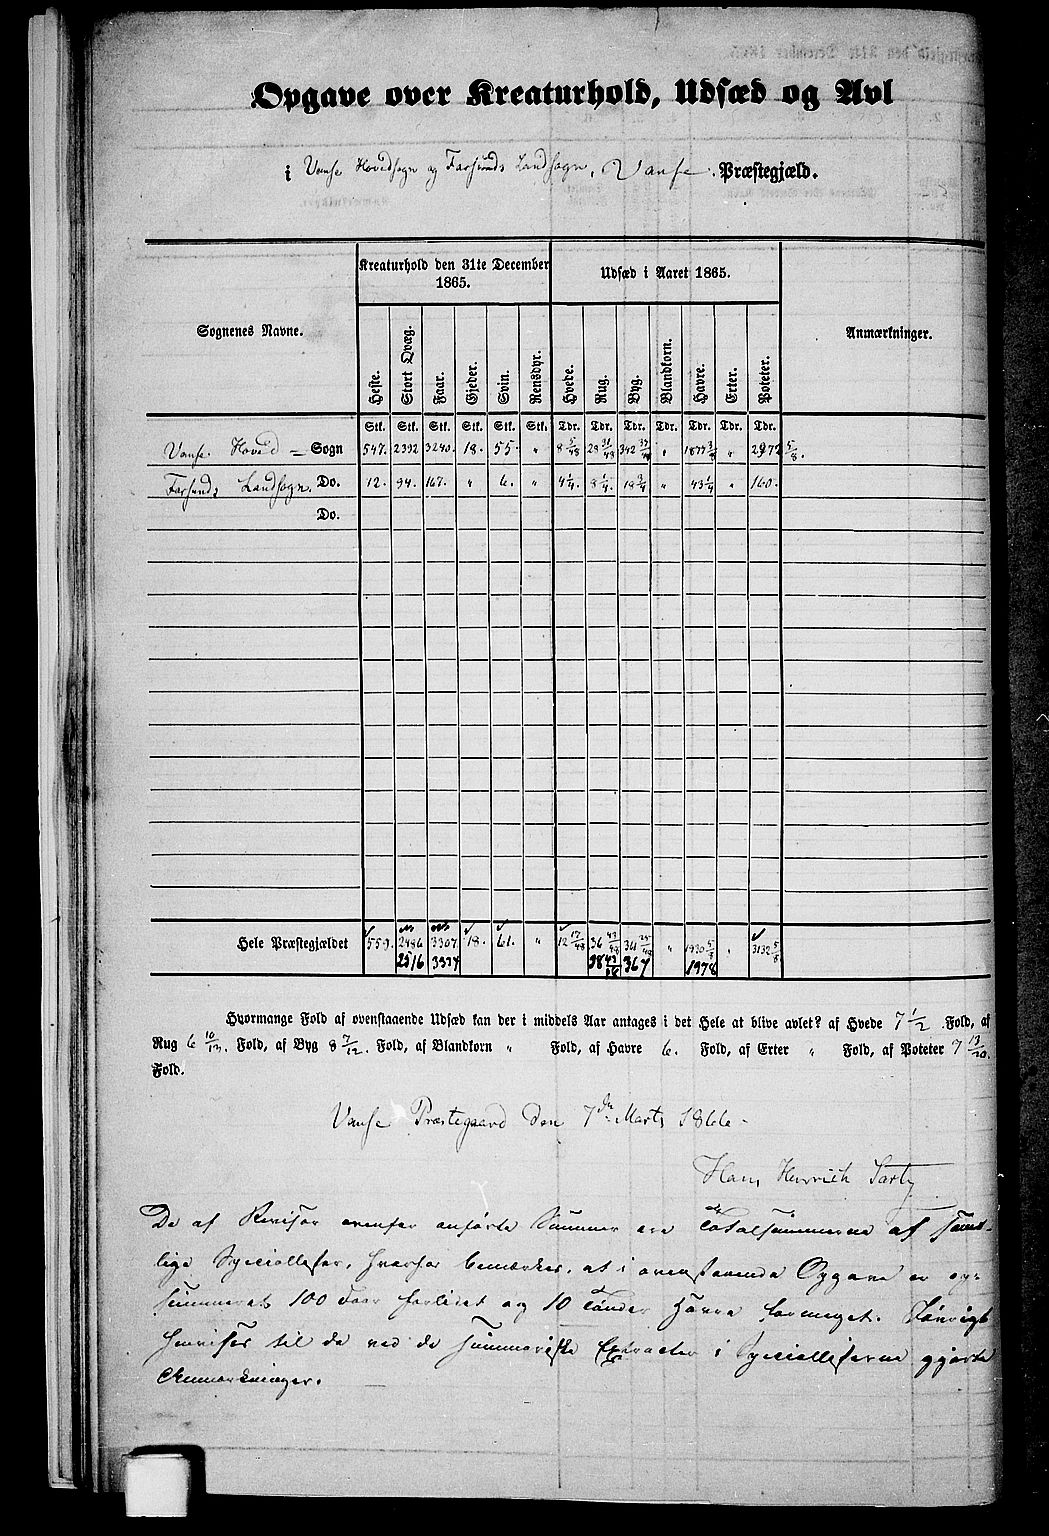 Opgave over Kreaturhold, Udsæd og Avl
i Vanse Hovedsogn og Farsunds Landsogn, Vanse Præstegjæld.
Sognenes Navne. Kreaturhold den 31te December 1865. Udsæd i Aaret 1865. Anmærkninger.
Heste. Stort Qvæg. Faar. Gjeder. Svin. Rensdyr. Hvede. Rug. Byg. Blandkorn. Havre. Erter. Poteter.
Stk. Stk. Stk. Stk. Stk. Stk. Tdr. Tdr. Tdr. Tdr. Tdr. Tdr. Tdr.
Vanse Hoved - Sogn 547. 2392 3240. 18. 55. " 8 5/48 28 31/48 342 " " 2972 5/8.
Farsunds Landsogn. Do. 12. 94. 167. " 6. " 4 1/4. 8 1/4. 18 3/4 " 43 1/4 " 160.
Do.
Hele Præstegjældet 559. 2486 3307 18. 61. " 12 17/48 36 43/48 361 " 1930 5/8 " 3132 5/8
2516 3337 38 43/48 367 1978
Hvormange Fold af ovenstaaende Udsæd kan der i middels Aar antages i det Hele at blive avlet? af Hvede 7 1/2. Fold, af
Rug 6 10/13. Fold, af Byg 8 7/12. Fold, af Blandkorn " Fold, af Havre 6. Fold, af Erter " Fold, af Poteter 7 13/20.
Fold.
Vanse Præstegaard den 7de Marts 1866.
Hans Henrich
De af Revisor ovenfor anførte Summer ere Totalsummerne af samt-
lige Speciallister, hvorfor bemærkes, at i ovenstaaende Opgave er op-
summeret 100 Faar forlidet og 10 Tønder Havre formeget. Iøvrigt
henvises til de ved de summariske Extracter i Speciallisterne gjorte
Anmærkninger.